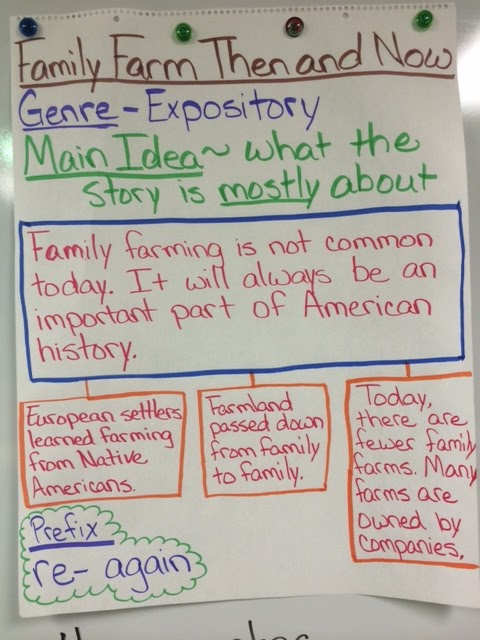 Family Farm Then and Now
Genre - Expository
Main Idea~ what the
story is mostly about
Family farming is not common
today. It will always be an
important part of American
history.
European settlers
learned farming
from Native
Americans.
Farmland
passed down
from family
to family.
Today,
there are
fewer family
farms. Many
farms are
owned by
companies.
Prefix
re- again